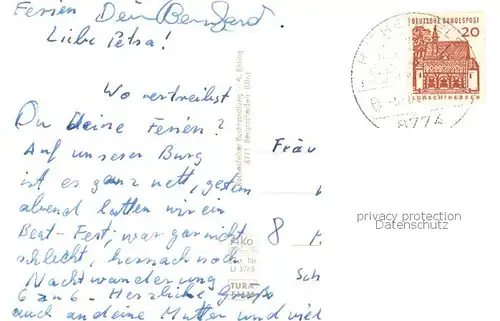 Ferien Dein Bernhard.
Liebe Petra!
Wo vertreibst
Du Deine Ferien?
Auf unserer Burg
ist es ganz nett, gestern
abend hatten wir ein
Beat-Fest; war gar nicht
schlecht, hernach noch
Nachtwanderung
Herzliche Grüße
auch an deine Mutter und viel
Buchhandlung A. Ebling
8771 Bergrothenfels
Kiko
TURA
Fräu
8
Sch
DEUTSCHE BUNDESPOST
20
LORSCH/HESSEN
8774
privacy protection
Datenschutz